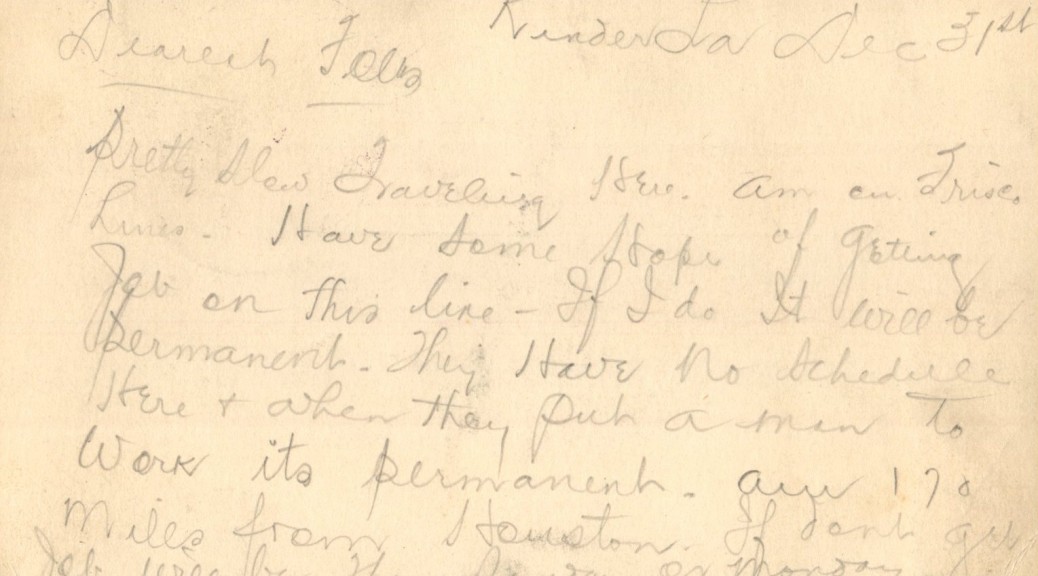 Kinder La Dec 31st
Dearest Folks
Pretty Slow Traveling Here. am on Frisco
Lines. Have Some Hope of Getting
Job on This line - If I do It will be
permanent. They Have No Schedule
Here + when they put a man to
Work its permanent. am 170
Miles from Houston. If dont get
Job will be on Monday